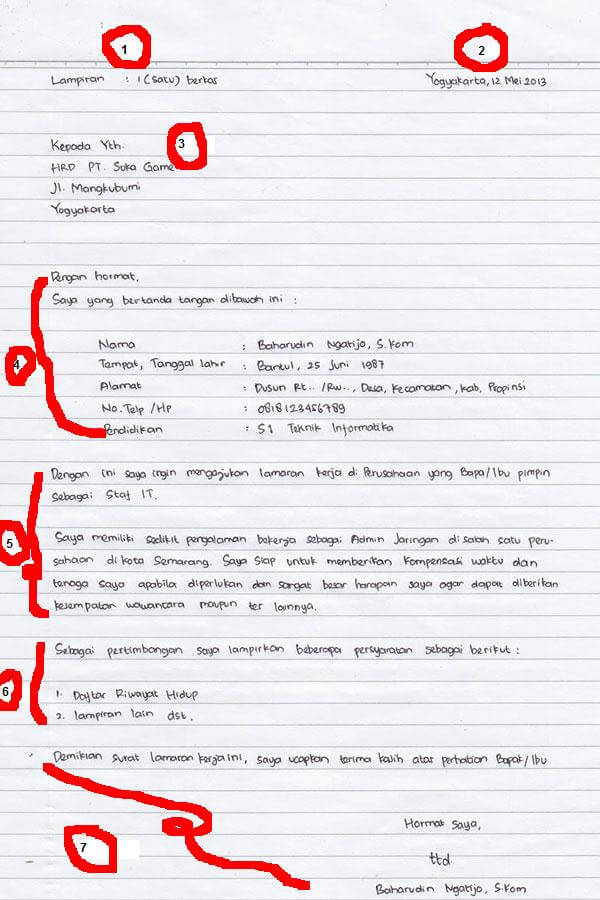 1
2
Lampiran : 1 (Satu) berkas
Yogyakarta, 12 Mei 2013
Kepada Yth.
3
HRD PT. Suka Game
Jl. Mangkubumi
Yogyakarta
Dengan hormat,
Saya yang bertanda tangan dibawah ini :
Nama : Baharudin Ngatijo, S.Kom
4
Tempat, Tanggal lahir : Bantul, 25 Juni 1987
Alamat : Dusun Rt.. /Rw.., Desa, Kecamatan, Kab, Propinsi
No. Telp /Hp : 0818123456789
Pendidikan : S1 Teknik Informatika
Dengan ini saya ingin mengajukan lamaran kerja di Perusahaan yang Bapa/Ibu pimpin
sebagai Staf IT.
5
Saya memiliki sedikit pengalaman bekerja sebagai Admin Jaringan di salah satu peru-
sahaan di kota Semarang. Saya Siap untuk memberikan kompensasi waktu dan
tenaga saya apabila diperlukan dan sangat besar harapan saya agar dapat diberikan
kesempatan wawancara maupun tes lainnya.
Sebagai pertimbangan saya lampirkan beberapa persyaratan sebagai berikut :
6
1. Daftar Riwayat Hidup
2. lampiran lain dst.
Demikian surat lamaran kerja ini, saya ucapkan terima kasih atas perhatian Bapak/Ibu
Hormat Saya,
7
ttd
Baharudin Ngatijo, S.Kom